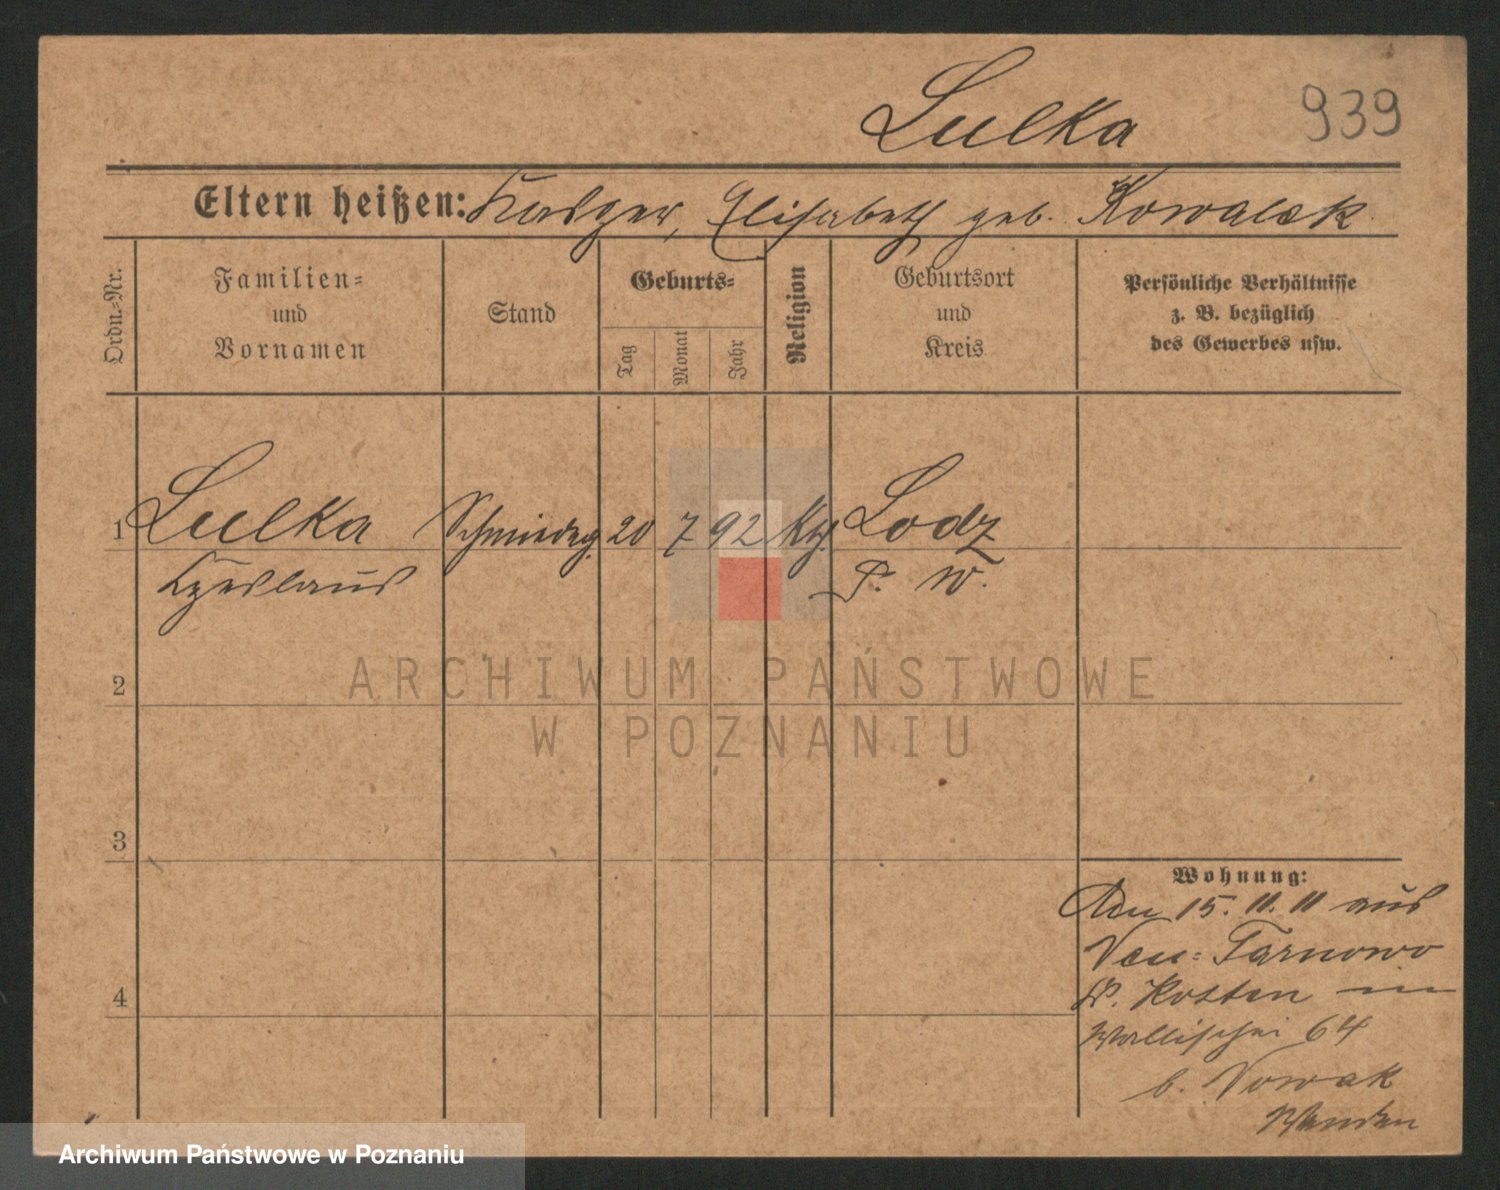 Lulka 939
Eltern heißen: Kasper, Elisabeth geb. Kowalek
Ordn.-Nr.
Familien-
und
Vornamen
Stand
Geburts-
Tag
Monat
Jahr
Religion
Geburtsort
und
Kreis
Persönliche Verhältnisse
z. B. bezüglich
des Gewerbes usw.
1 Lulka Schmiedeg. 20 7 92 Kth. Lodz
Czeslaus P. W.
2
3
4
Wohnung:
Den 15. 11. 11 aus
Neu-Tarnowo
Kr. Kosten in
Wallischei 64
b. Nowak
Wenden
ARCHIWUM PAŃSTWOWE
W POZNANIU
Archiwum Państwowe w Poznaniu